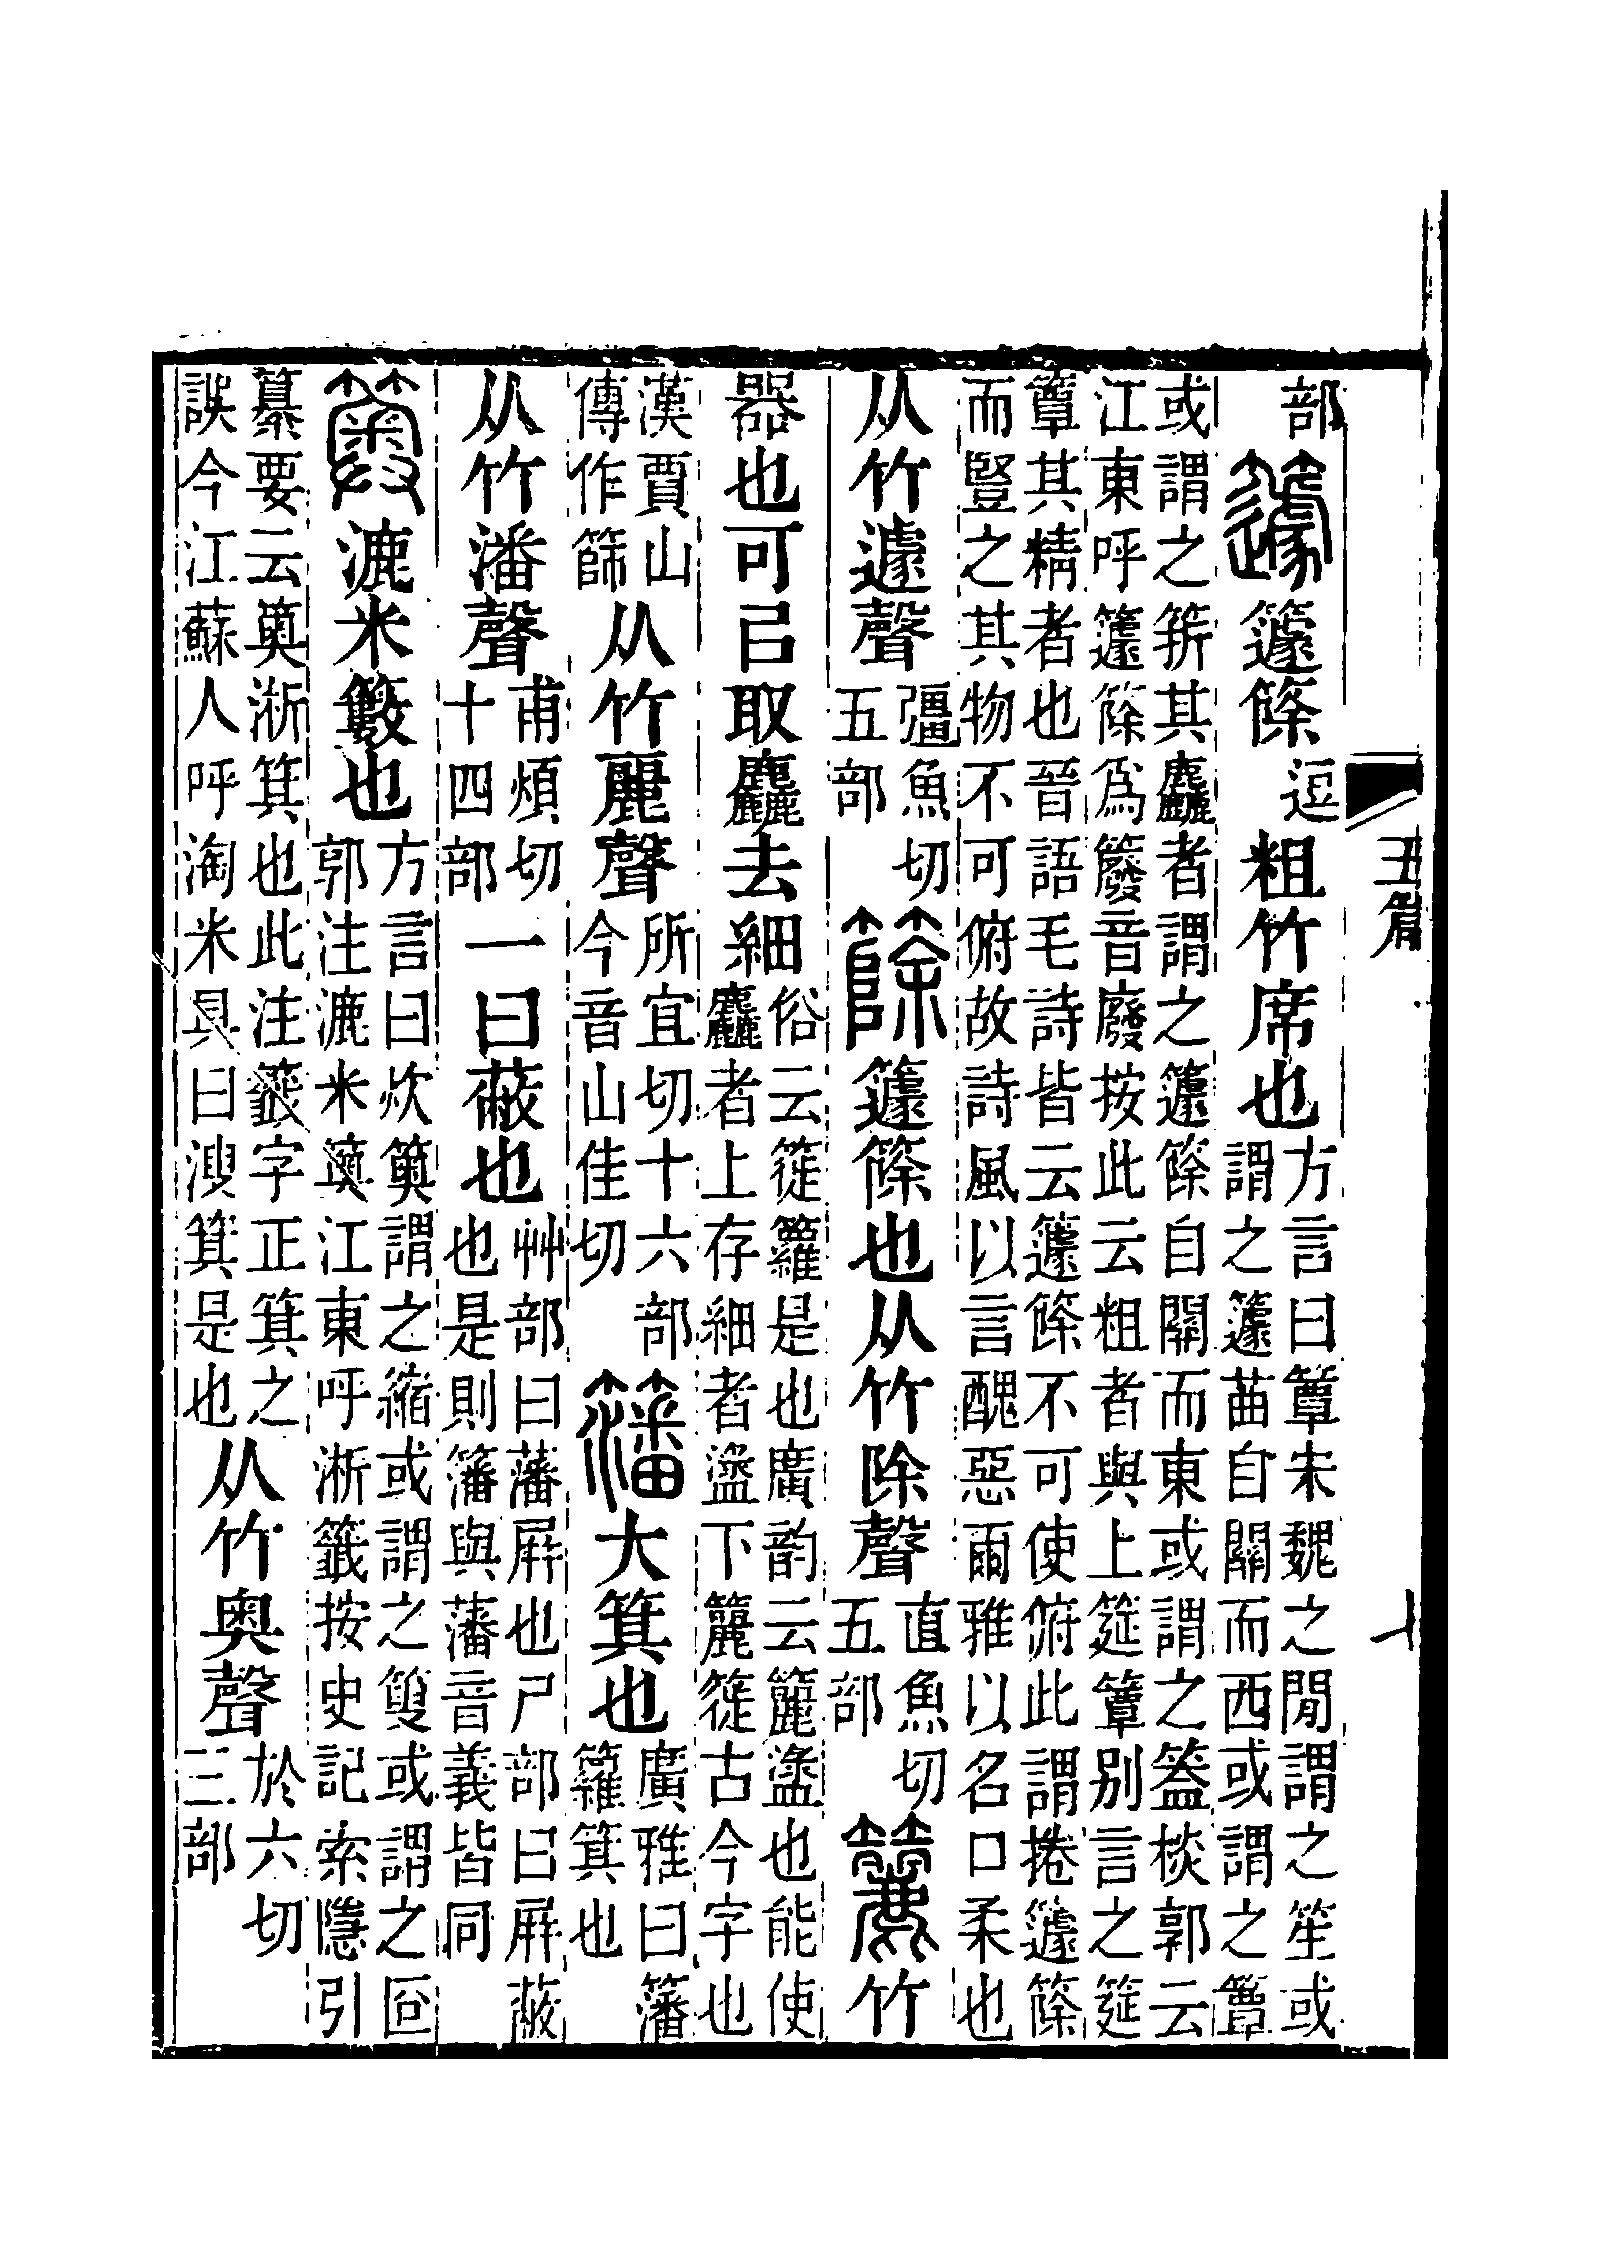 五篇
部籧籧篨逗粗竹席也方言曰簟宋魏之閒謂之笙或謂之籧䒼自關而西或謂之簟
或謂之䉪其麤者謂之籧篨自關而東或謂之葢棪郭云江東呼籧篨爲䉬音廢按此云粗者與上筵簟別言之筵
簟其精者也晉語毛詩皆云籧篨不可使俯此謂捲籧篨而豎之其物不可俯故詩風以言醜惡爾雅以名口柔也
从竹遽聲彊魚切五部篨籧篨也从竹除聲直魚切五部籭竹
器也可㠯取麤去細俗云簁籮是也廣韵云籭盪也能使麤者上存細者盪下籭簁古今字也
漢賈山傳作篩从竹麗聲所宜切十六部今音山佳切籓大箕也廣雅曰籓籮箕也
从竹潘聲甫煩切十四部一曰蔽也艸部曰藩屛也尸部曰屛蔽也是則籓與藩音義皆同
䉛漉米籔也方言曰炊䉛謂之縮或謂之䉤或謂之㔯郭注漉米䉛江東呼淅籤按史記索隱引
纂要云䉛淅箕也此注籤字正箕之誤今江蘇人呼淘米具曰溲箕是也从竹奥聲於六切三部